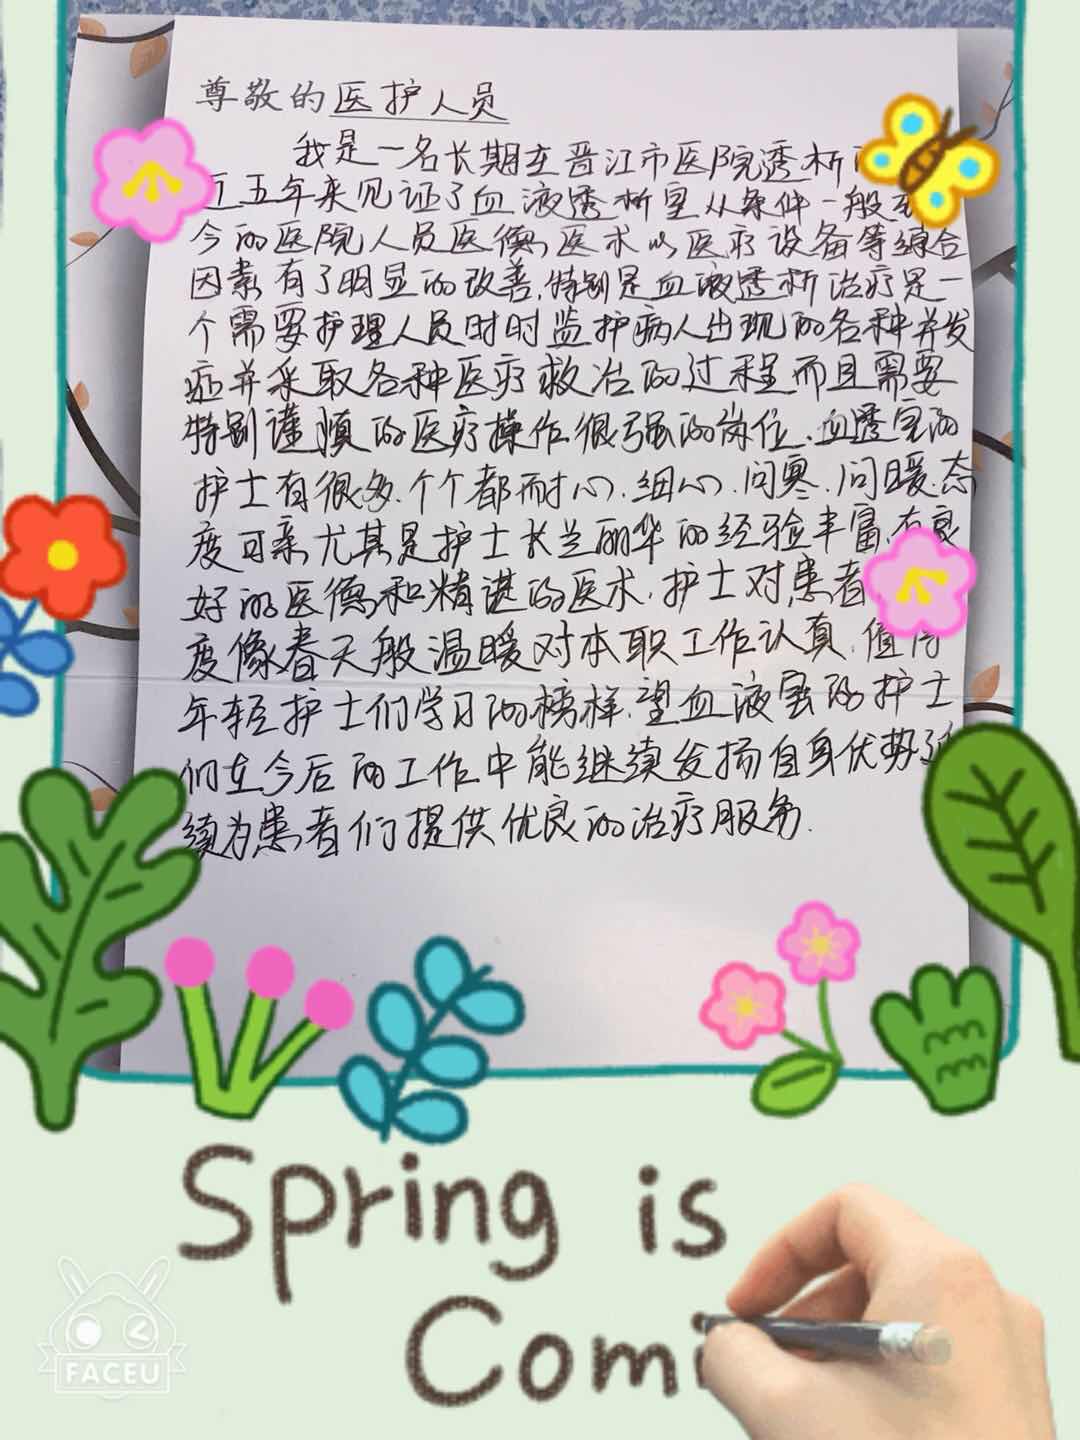 尊敬的医护人员
我是一名长期在晋江市医院透析
近五年来见证了血液透析室从条件一般至
今的医院人员医德、医术以医疗设备等综合
因素有了明显的改善,特别是血液透析治疗是一
个需要护理人员时时监护病人出现的各种并发
症并采取各种医疗救治的过程而且需要
特别谨慎的医疗操作很强的岗位、血透室的
护士有很多.个个都耐心.细心.问寒.问暖.态
度可亲尤其是护士长兰丽华的经验丰富,有良
好的医德和精湛的医术.护士对患者
度像春天般温暖对本职工作认真.值得
年轻护士们学习的榜样.望血液室的护士
们在今后的工作中能继续发扬自身优势延
续为患者们提供优良的治疗服务.
Spring is
Comi
FACEU